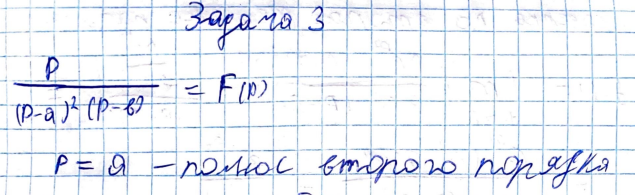 Задача 3
p
(p-a)² (p-в) = F(p)
p = a - полюс второго порядка